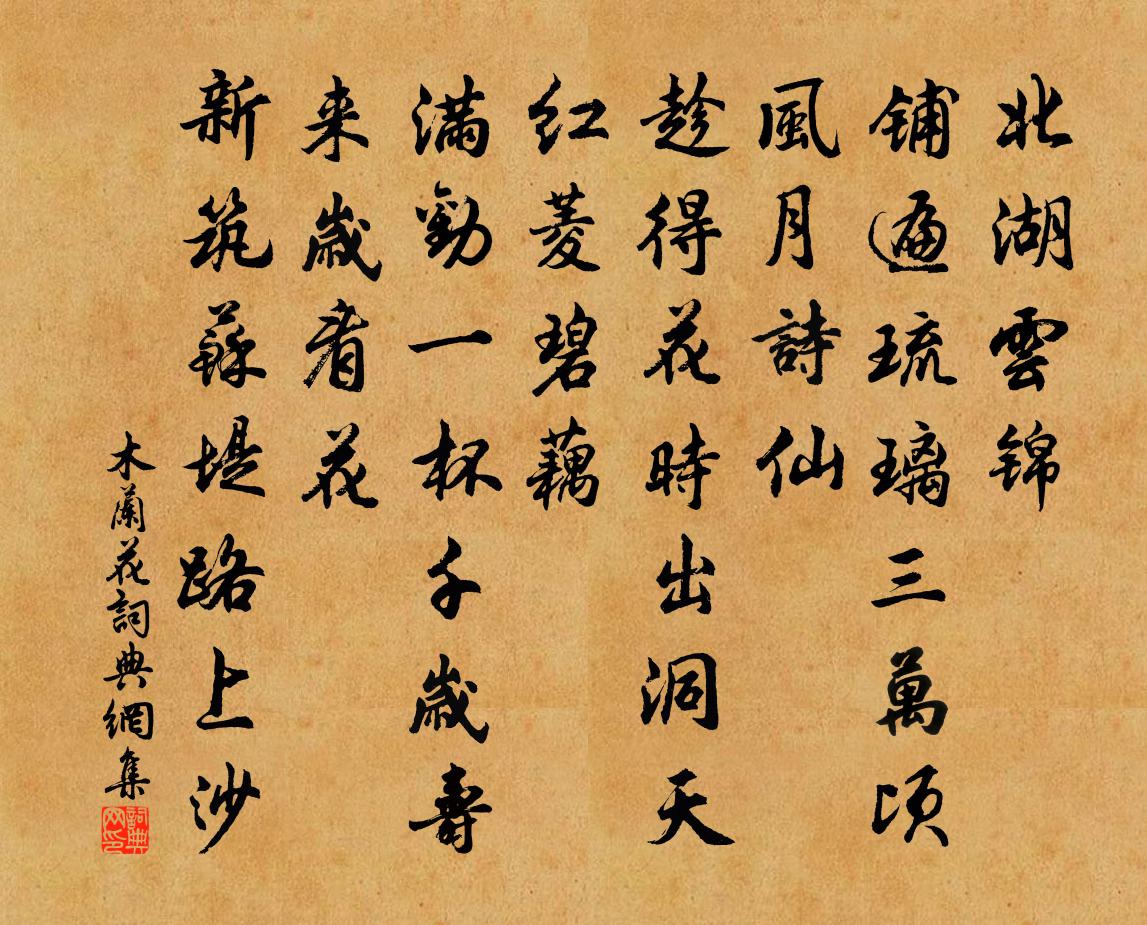 北湖雲錦
铺遍琉璃三萬頃
風月詩仙
趁得花時出洞天
红菱碧藕
满勸一杯千歲壽
来歲看花
新筑蘇堤路上沙
木蘭花詞典網集
詞典网印